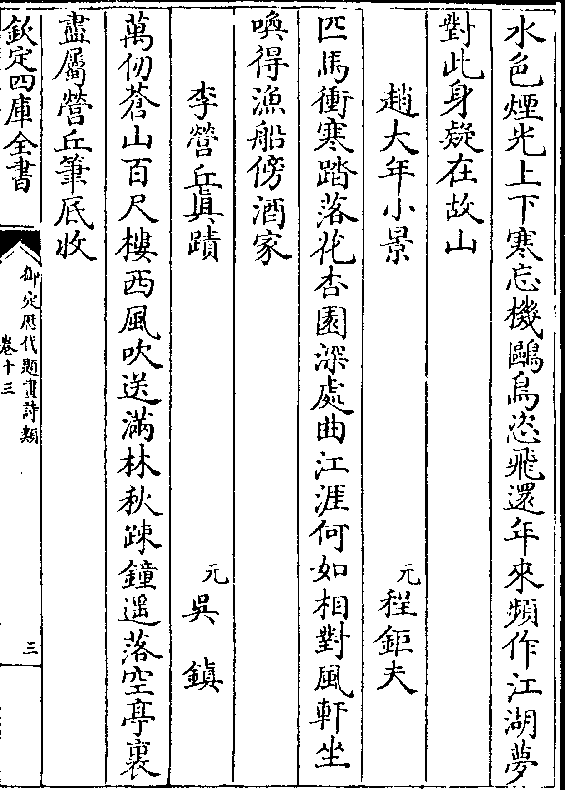 水色煙光上下寒忘機鷗鳥恣飛還年來頻作江湖夢
對此身疑在故山
趙大年小景
元
程鉅夫
匹馬衝寒踏落花杏園深處曲江涯何如相對風軒坐
喚得漁船傍酒家
李營丘真蹟
元
吳鎮
萬仞蒼山百尺樓西風吹送滿林秋踈鐘遥落空亭裏
盡屬營丘筆底收
欽定四庫全書
御定歷代題畫詩類
卷十三
三